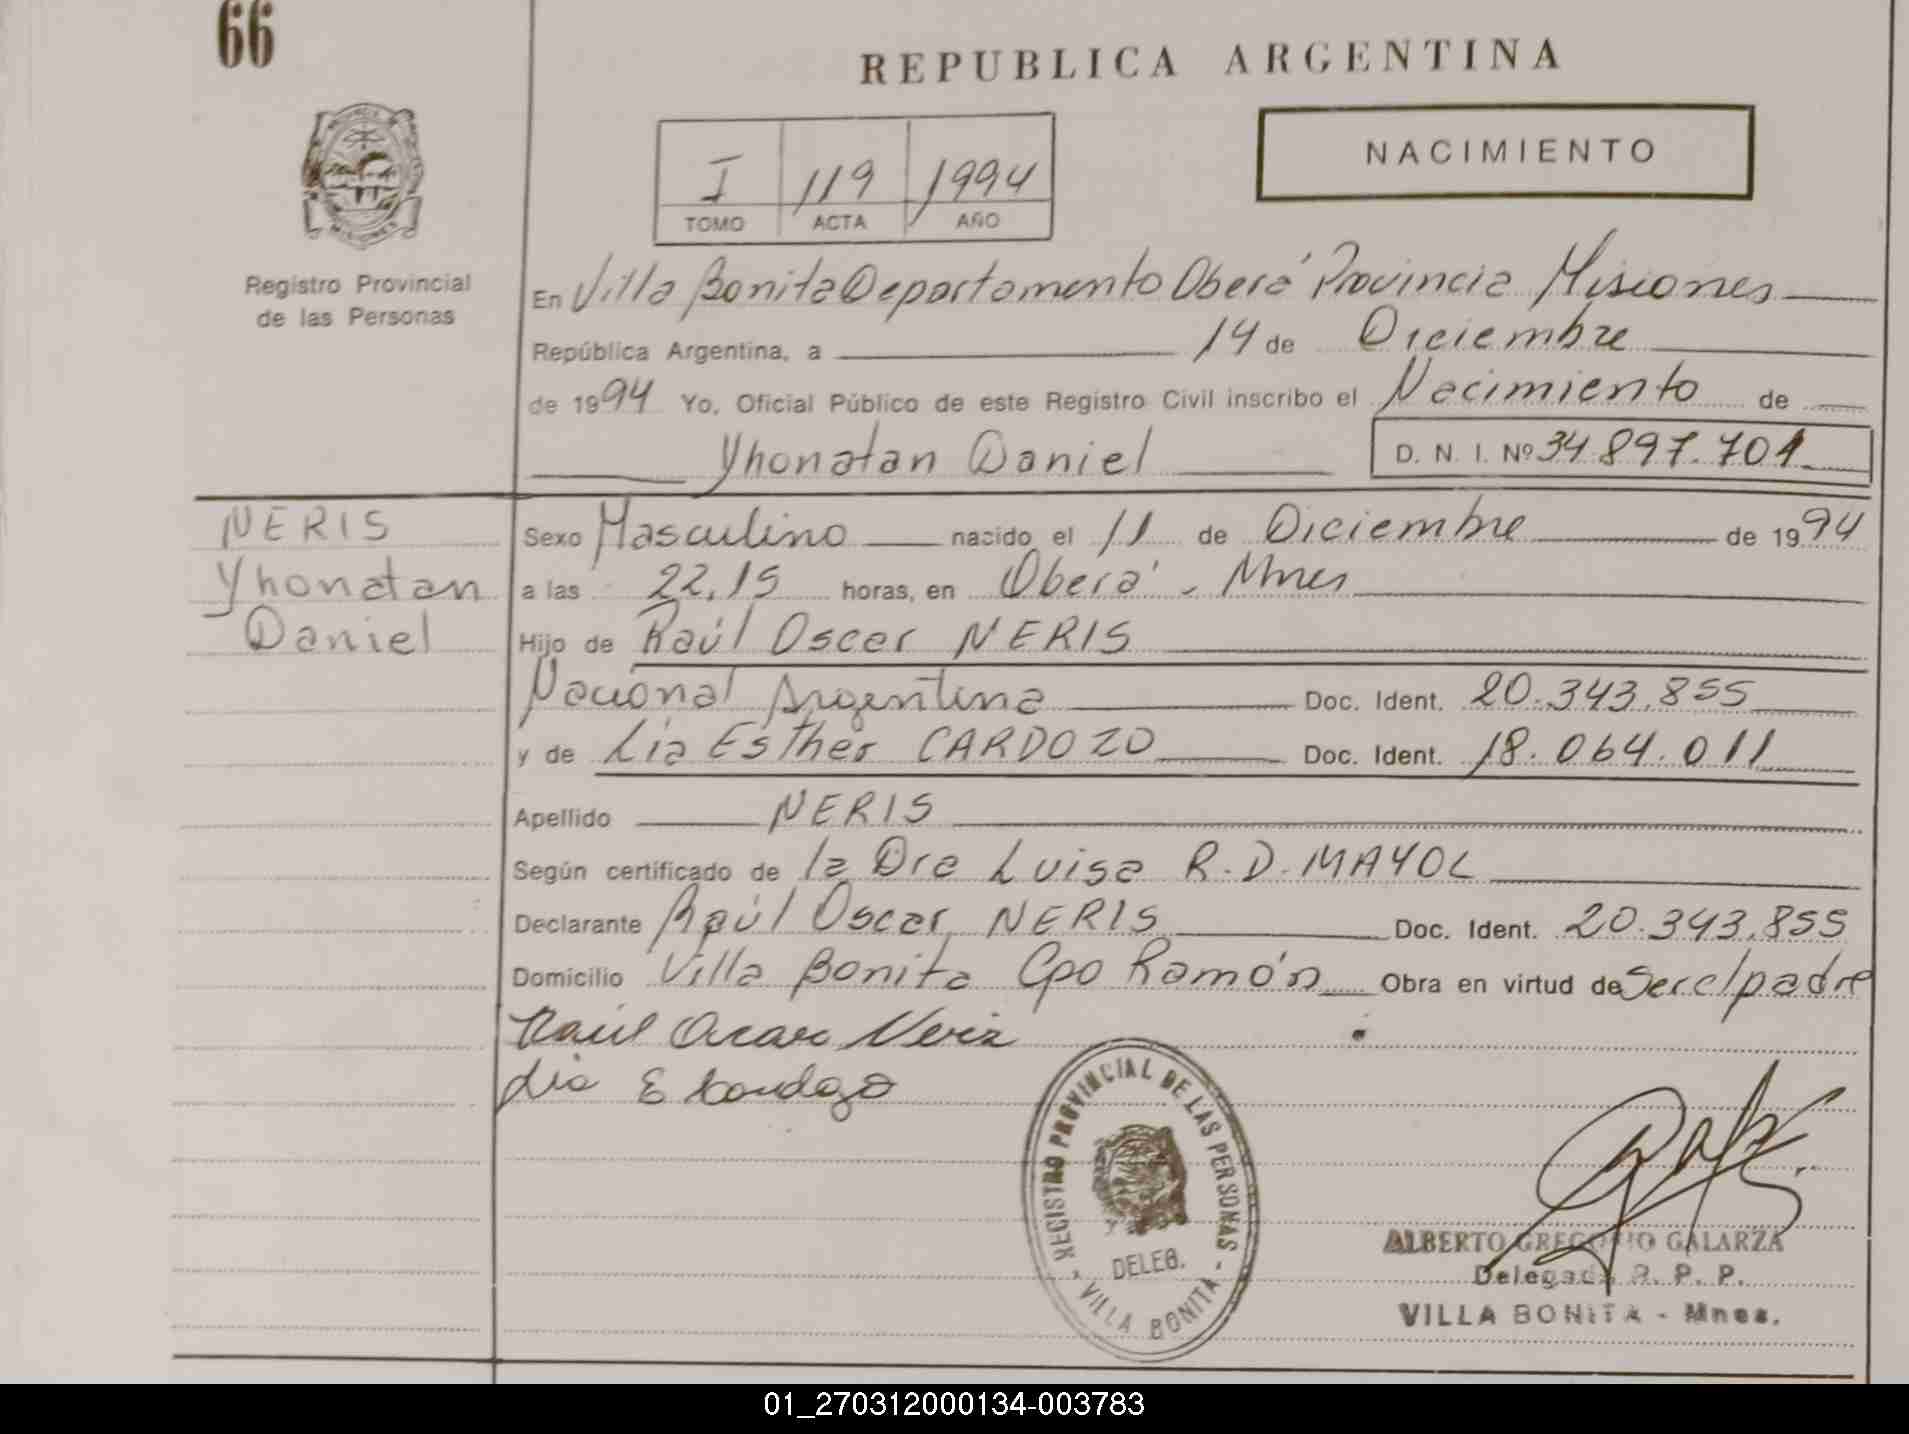 66
REPUBLICA ARGENTINA
NACIMIENTO
I 119 1994
TOMO ACTA AÑO
PROVINCIA
MISIONES
Registro Provincial
de las Personas
En Villa Bonita Departamento Oberá Provincia Misiones
República Argentina, a 14 de Diciembre
de 1994 Yo, Oficial Público de este Registro Civil inscribo el Nacimiento de
Yhonatan Daniel D. N. I. Nº 34.897.701
NERIS
Yhonatan
Daniel
Sexo Masculino nacido el 11 de Diciembre de 1994
a las 22,15 horas, en Oberá - Mnes
Hijo de Raúl Oscar NERIS
Nacional Argentina Doc. Ident. 20.343.855
y de Lia Esther CARDOZO Doc. Ident. 18.064.011
Apellido NERIS
Según certificado de la Dra Luisa R.D. MAYOL
Declarante Raúl Oscar NERIS Doc. Ident. 20.343.855
Domicilio Villa Bonita Cpo Ramón Obra en virtud de ser el padre
Raúl Oscar Neris
Lia E Cardozo
REGISTRO PROVINCIAL DE LAS PERSONAS
DELEG.
- VILLA BONITA -
ALBERTO GREGORIO GALARZA
Delegado R. P. P.
VILLA BONITA - Mnes.
01_270312000134-003783